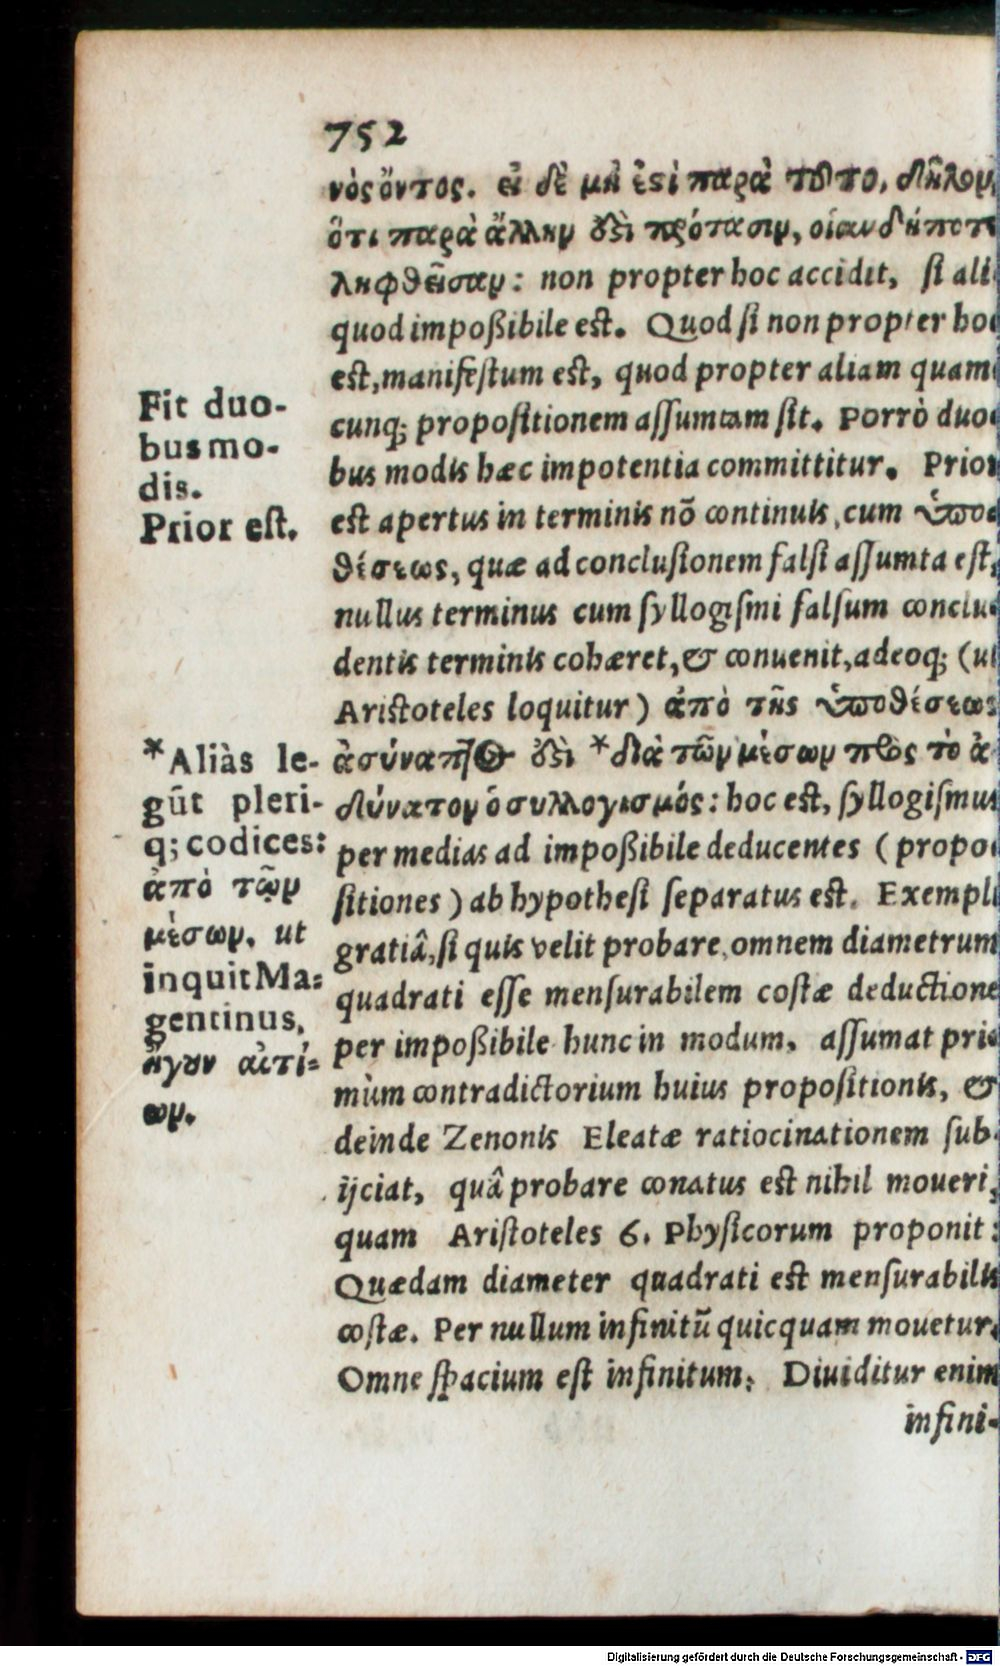 752
νὸς ὄντος. εἰ δὲ μή ἐστὶ παρὰ τοῦτο, δῆλον,
ὅτι παρὰ ἄλλην ἐστὶ πρότασιν, οἱανδήποτε
ληφθεῖσαν: non propter hoc accidit, ſi ali
quod impoßibile eſt. Quod ſi non propter hoc
eſt, manifeſtum eſt, quod propter aliam quam
cunq; propoſitionem aſſumtam ſit. Porrò duo-
bus modis hæc impotentia committitur. Prior
eſt apertus in terminis nõ continuis, cum ὑπο-
θέσεως, quæ ad concluſionem falſi aſſumta eſt,
nullus terminus cum ſyllogiſmi falſum conclu-
dentis terminis cohæret, & conuenit, adeoq; (ut
Ariſtoteles loquitur) ἀπὸ τῆς ὑποθέσεως
ἀσύναπτος ἐστὶ *διὰ τῶν μέσων πρὸς τὸ ἀ-
δύνατον ὁ συλλογισμός: hoc eſt, ſyllogiſmus
per medias ad impoßibile deducentes (propo-
ſitiones) ab hypotheſi ſeparatus eſt. Exempli
gratiâ, ſi quis velit probare, omnem diametrum
quadrati eſſe menſurabilem coſtæ deductione
per impoßibile hunc in modum, aſſumat pri-
mùm contradictorium huius propoſitionis, &
deinde Zenonis Eleatæ ratiocinationem ſub-
ijciat, quâ probare conatus eſt nihil moueri,
quam Ariſtoteles 6. Phyſicorum proponit:
Quædam diameter quadrati eſt menſurabilis
coſtæ. Per nullum infinitũ quicquam mouetur.
Omne ſpacium eſt infinitum: Diuiditur enim
infini-
Fit duo-
bus mo-
dis.
Prior eſt.
*Aliàs le-
gũt pleri-
q; codices:
ἀπὸ τῶν
μέσων. ut
inquit Ma-
gentinus,
ἤγουν αἰτί-
ων.
Digitalisierung gefördert durch die Deutsche Forschungsgemeinschaft - DFG